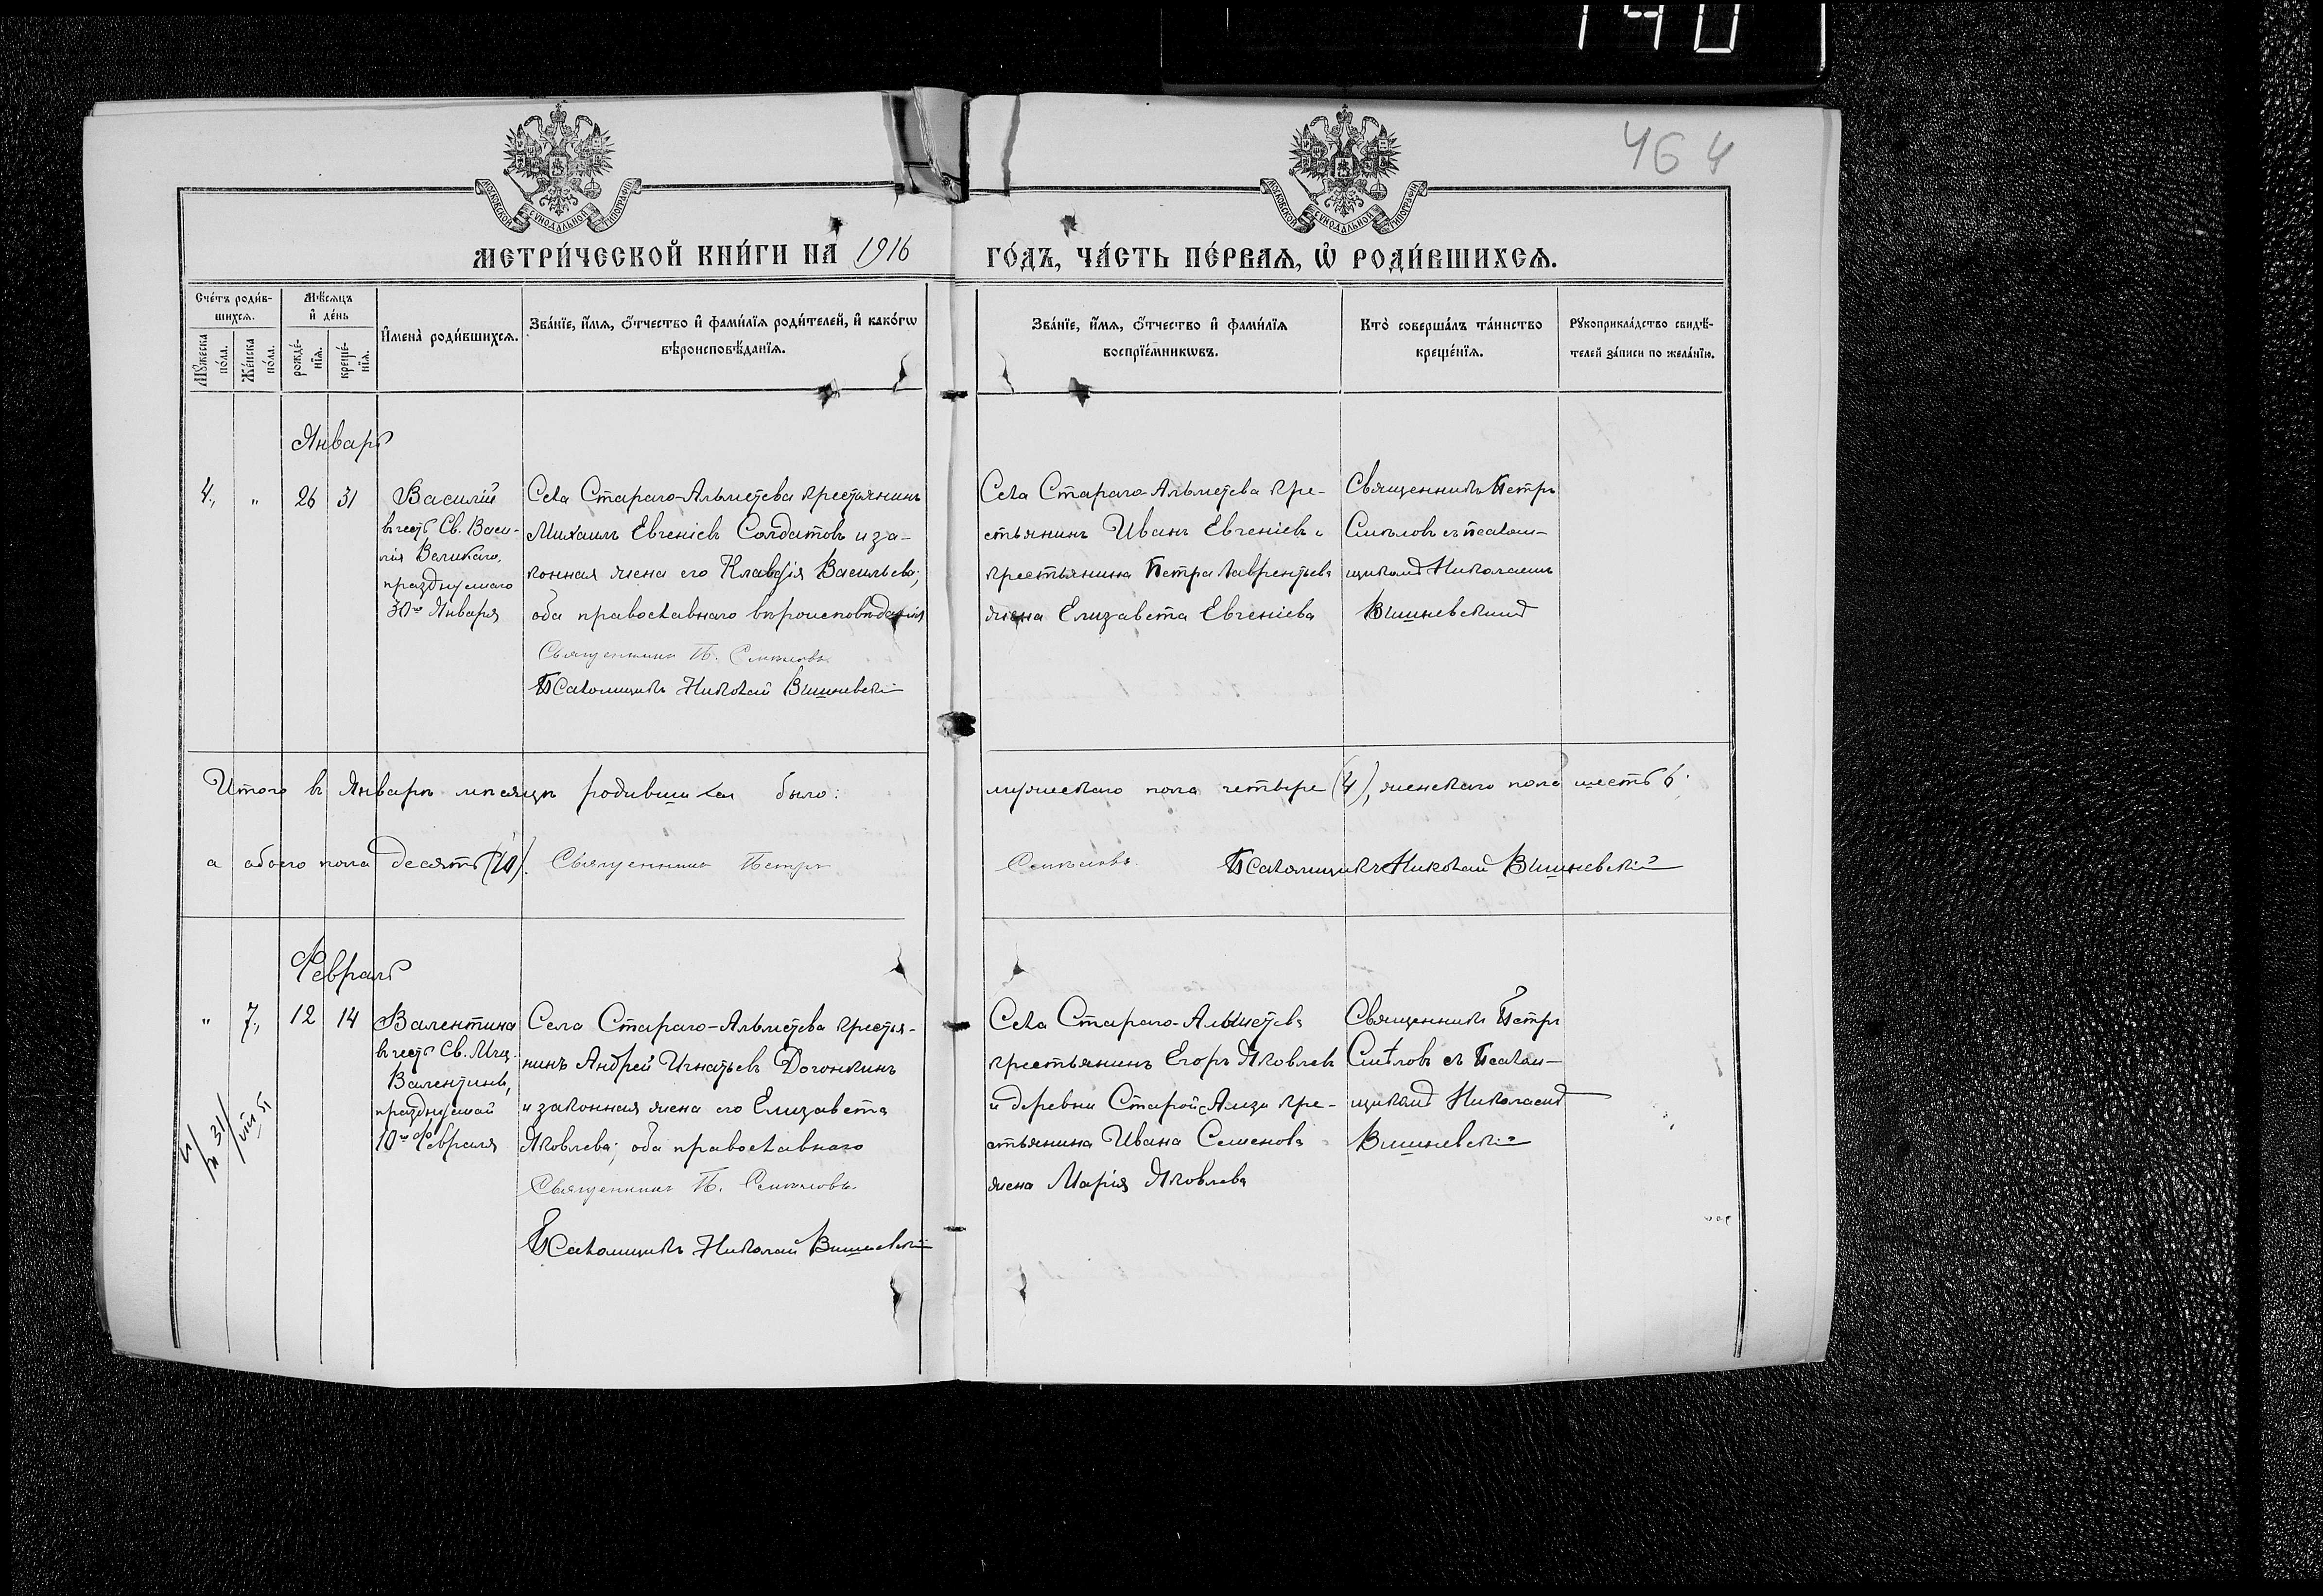 140
464
МОСКОВСКОЙ СѴНОДАЛЬНОЙ ТИПОГРАФІИ
МОСКОВСКОЙ СѴНОДАЛЬНОЙ ТИПОГРАФІИ
МЕТРИ́ЧЕСКОЙ КНИ́ГИ НА 1916 ГО́ДЪ, ЧА́СТЬ ПЕ́РВАѦ, Ѡ҆ РОДИ́ВШИХСѦ.
Сче́тъ роди́в-
шихсѧ.
Мꙋ́жеска по́ла.
Же́нска по́ла.
Мѣ́сѧцъ
и҆ де́нь
рожде́-
нїѧ.
креще́-
нїѧ.
И҆мена̀ роди́вшихсѧ.
Зва́нїе, и҆́мѧ, ѻ҆́тчество и҆ фами́лїѧ роди́телей, и҆ како́гѡ
вѣроисповѣ́данїѧ.
Зва́нїе, и҆́мѧ, ѻ҆́тчество и҆ фами́лїѧ
воспрїе́мникѡвъ.
Кто̀ соверша́лъ та́инство
креще́нїѧ.
Рꙋкоприкла́дство свидѣ́-
телей за́писи по жела́нїю.
Январь
4., " 26 31
Василій
въ честь Св. Васи-
лія Великаго,
празднуемаго
30го Января
Села Стараго-Альметьева крестьянинъ
Михаилъ Евгеніевъ Солдатовъ и за-
конная жена его Клавдія Васильева;
оба православнаго вѣроисповѣданія
Священникъ П.
Псаломщикъ Николай Вишневскій
Села Стараго-Альметьева кре-
стьянинъ Иванъ Евгеніевъ и
крестьянина Петра Лаврентьева
жена Елизавета Евгеніева
Священникъ Петръ
Смѣловъ съ псалом-
щикомъ Николаемъ
Вишневскимъ
Итого въ Январѣ мѣсяцѣ родившихся было: мужескаго пола четыре (4), женскаго пола шесть 6.
а обоего пола десять (10). Священникъ Петръ Смѣловъ. Псаломщикъ Николай Вишневскій
Февраль
" 7., 12 14
Валентина
въ честь Св. Мчц.
Валентины,
празднуемой
10го Февраля
Села Стараго-Альметьева крестья-
нинъ Андрей Игнатьевъ Догонкинъ
и законная жена его Елизавета
Яковлева; оба православнаго
Священникъ П. Смѣловъ
Псаломщикъ Николай Вишневскій
Села Стараго-Альметьева
крестьянинъ Егоръ Яковлевъ
и деревни Старой кре-
стьянина Ивана Семенова
жена Марія Яковлева
Священникъ Петръ
Смѣловъ съ Псалом-
щикомъ Николаемъ
Вишневскимъ